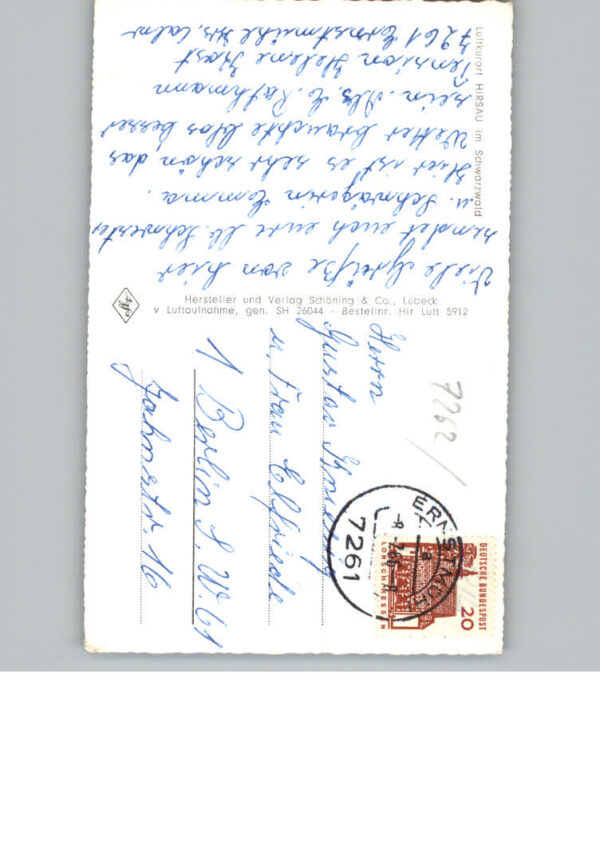 Luftkurort HIRSAU im Schwarzwald
Viele Grüße von hier
sendet euch eure lb. Schwester
u. Schwägerin Emma.
Hier ist es sehr schön das
Wetter brauchte blos besser
sein. Abs. E. Rathmann
Pension Helene Hast
7261 Ernstmühl Krs. Calw
Hersteller und Verlag Schöning & Co., Lübeck
v Luftaufnahme, gen. SH 26044 - Bestellnr. Hir Luft 5912
7262/
Herrn
Gustav
u. Frau Elfriede
1 Berlin S.W. 61
Jahnstr. 16
ERNSTMÜHL
a
7261
DEUTSCHE BUNDESPOST
20
LORSCH/HESSEN